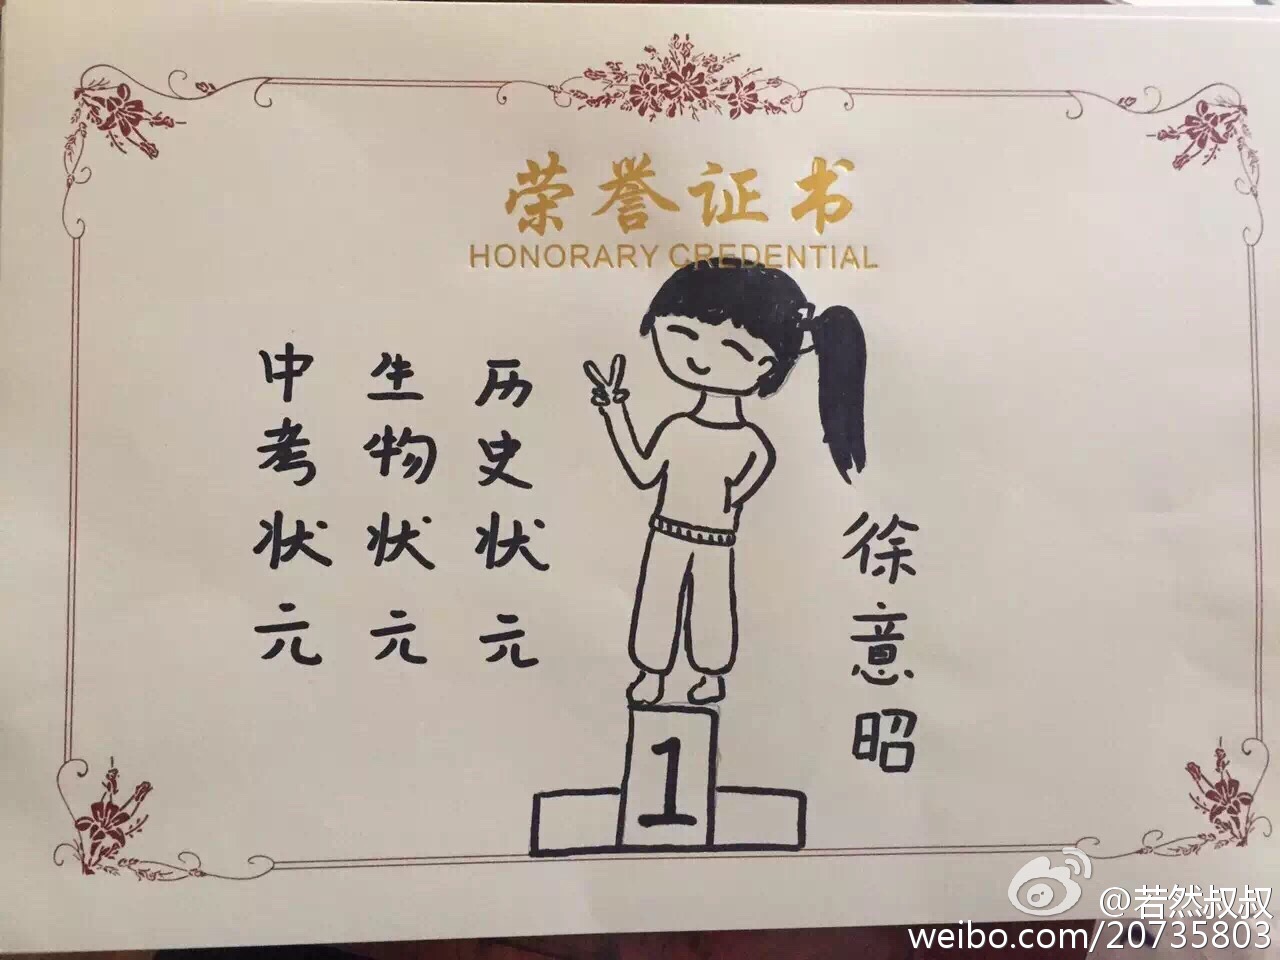 荣誉证书
HONORARY CREDENTIAL
徐意昭
历史状元
生物状元
中考状元
1
@若然叔叔
weibo.com/20735803